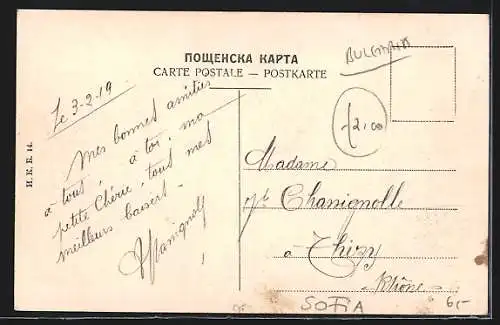 ПОЩЕНСКА КАРТА
CARTE POSTALE — POSTKARTE
BULGARIA
Le 3-2-19
Mes bonnes amitiés
à tous, à toi, ma
petite Chérie, tous mes
meilleurs baisers -
12,00
Madame
Chanignolle
à Thizy
Rhône
И. К. В. 14.
SOFIA
6,-